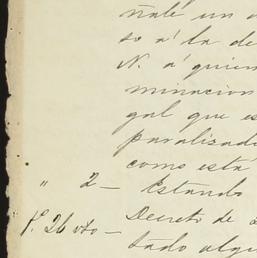 ñale un
so á la de
N. á quien
minacion
gal que es
paralisado
como está
" 2 — Estando
Decreto de
tado algu